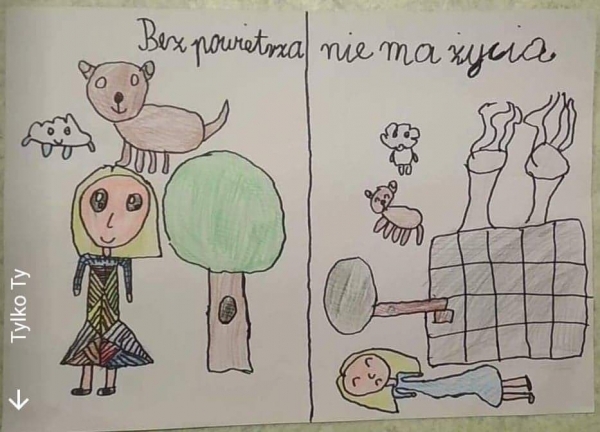 Bez powietrza nie ma życia
Tylko Ty